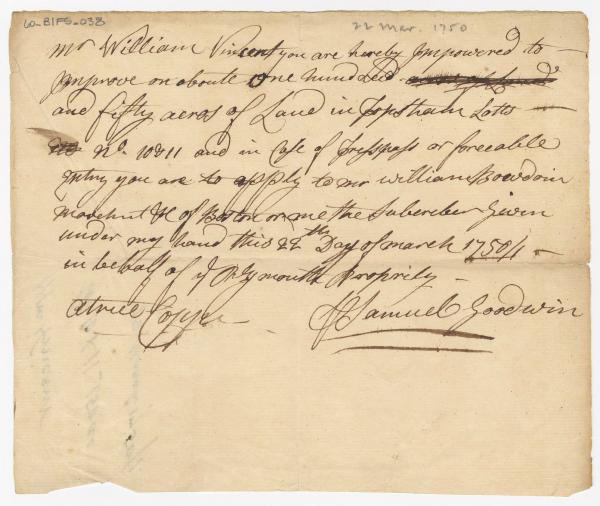 60-B1F5-038
22 Mar. 1750
Mr William Vincent you are hereby Impowered to
Improve on aboute One hundred
and fifty acres of Land in Topsham Lotts
No. 10 & 11 and in Case of Tresspass or foreceable
Entry you are to apply to mr William Bowdoin
marchent &c of Boston or me the Subscriber Given
under my hand this 22th Day of march 1750/1
in behalf of ye Plymouth Proprity
A true Coppe
Samuel Goodwin